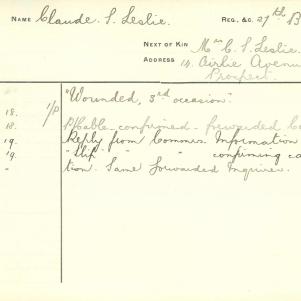 NAME Claude. S. Leslie. REG., &C. 27th B
NEXT OF KIN Mrs C. S. Leslie.
ADDRESS 14. Airlie Avenue
Prospect.
"Wounded, 3rd occasion".
18. 1/P
18. P/Cable confirmed - forwarded
19. Reply from Commns. Information
19. " " confirming
" tion. Same forwarded Inquirer.